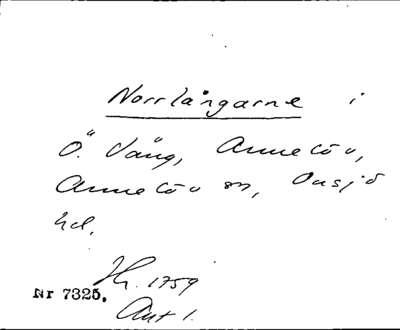 Norrlångarne i
Ö. Vång, Annelöv,
Annelöv sn, Onsjö
hd.
Hr. 1759
Nr 7325.
Akt 1.